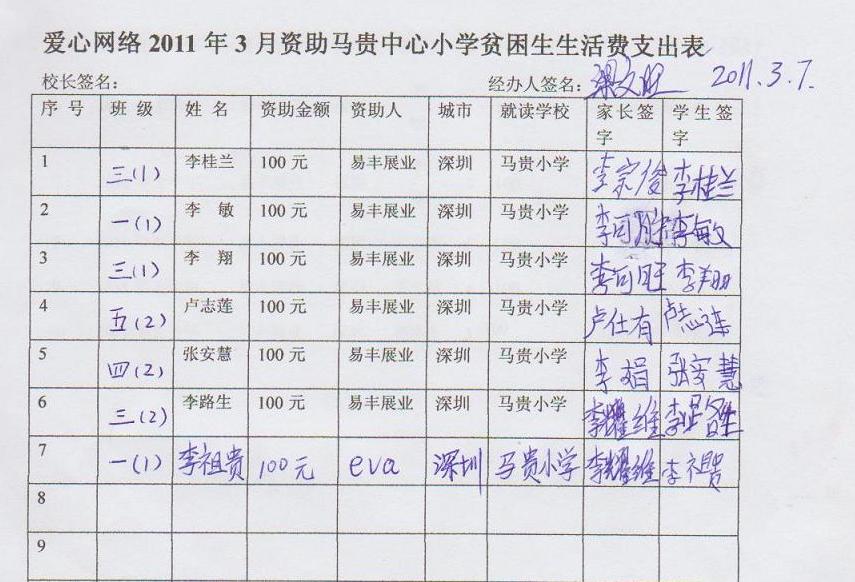 爱心网络 2011 年 3 月资助马贵中心小学贫困生生活费支出表
校长签名： 经办人签名：梁文旺 2011.3.7.
序 号 班 级 姓 名 资助金额 资助人 城市 就读学校 家长签字 学生签字
1 三(1) 李桂兰 100 元 易丰展业 深圳 马贵小学 李宗俊 李桂兰
2 一(1) 李 敏 100 元 易丰展业 深圳 马贵小学 李可 李敏
3 三(1) 李 翔 100 元 易丰展业 深圳 马贵小学 李可旺 李翔
4 五(2) 卢志莲 100 元 易丰展业 深圳 马贵小学 卢仕有 卢志莲
5 四(2) 张安慧 100 元 易丰展业 深圳 马贵小学 李娟 张安慧
6 三(2) 李路生 100 元 易丰展业 深圳 马贵小学 李耀维 李路生
7 一(1) 李祖贵 100元 eva 深圳 马贵小学 李耀维 李祖贵
8
9